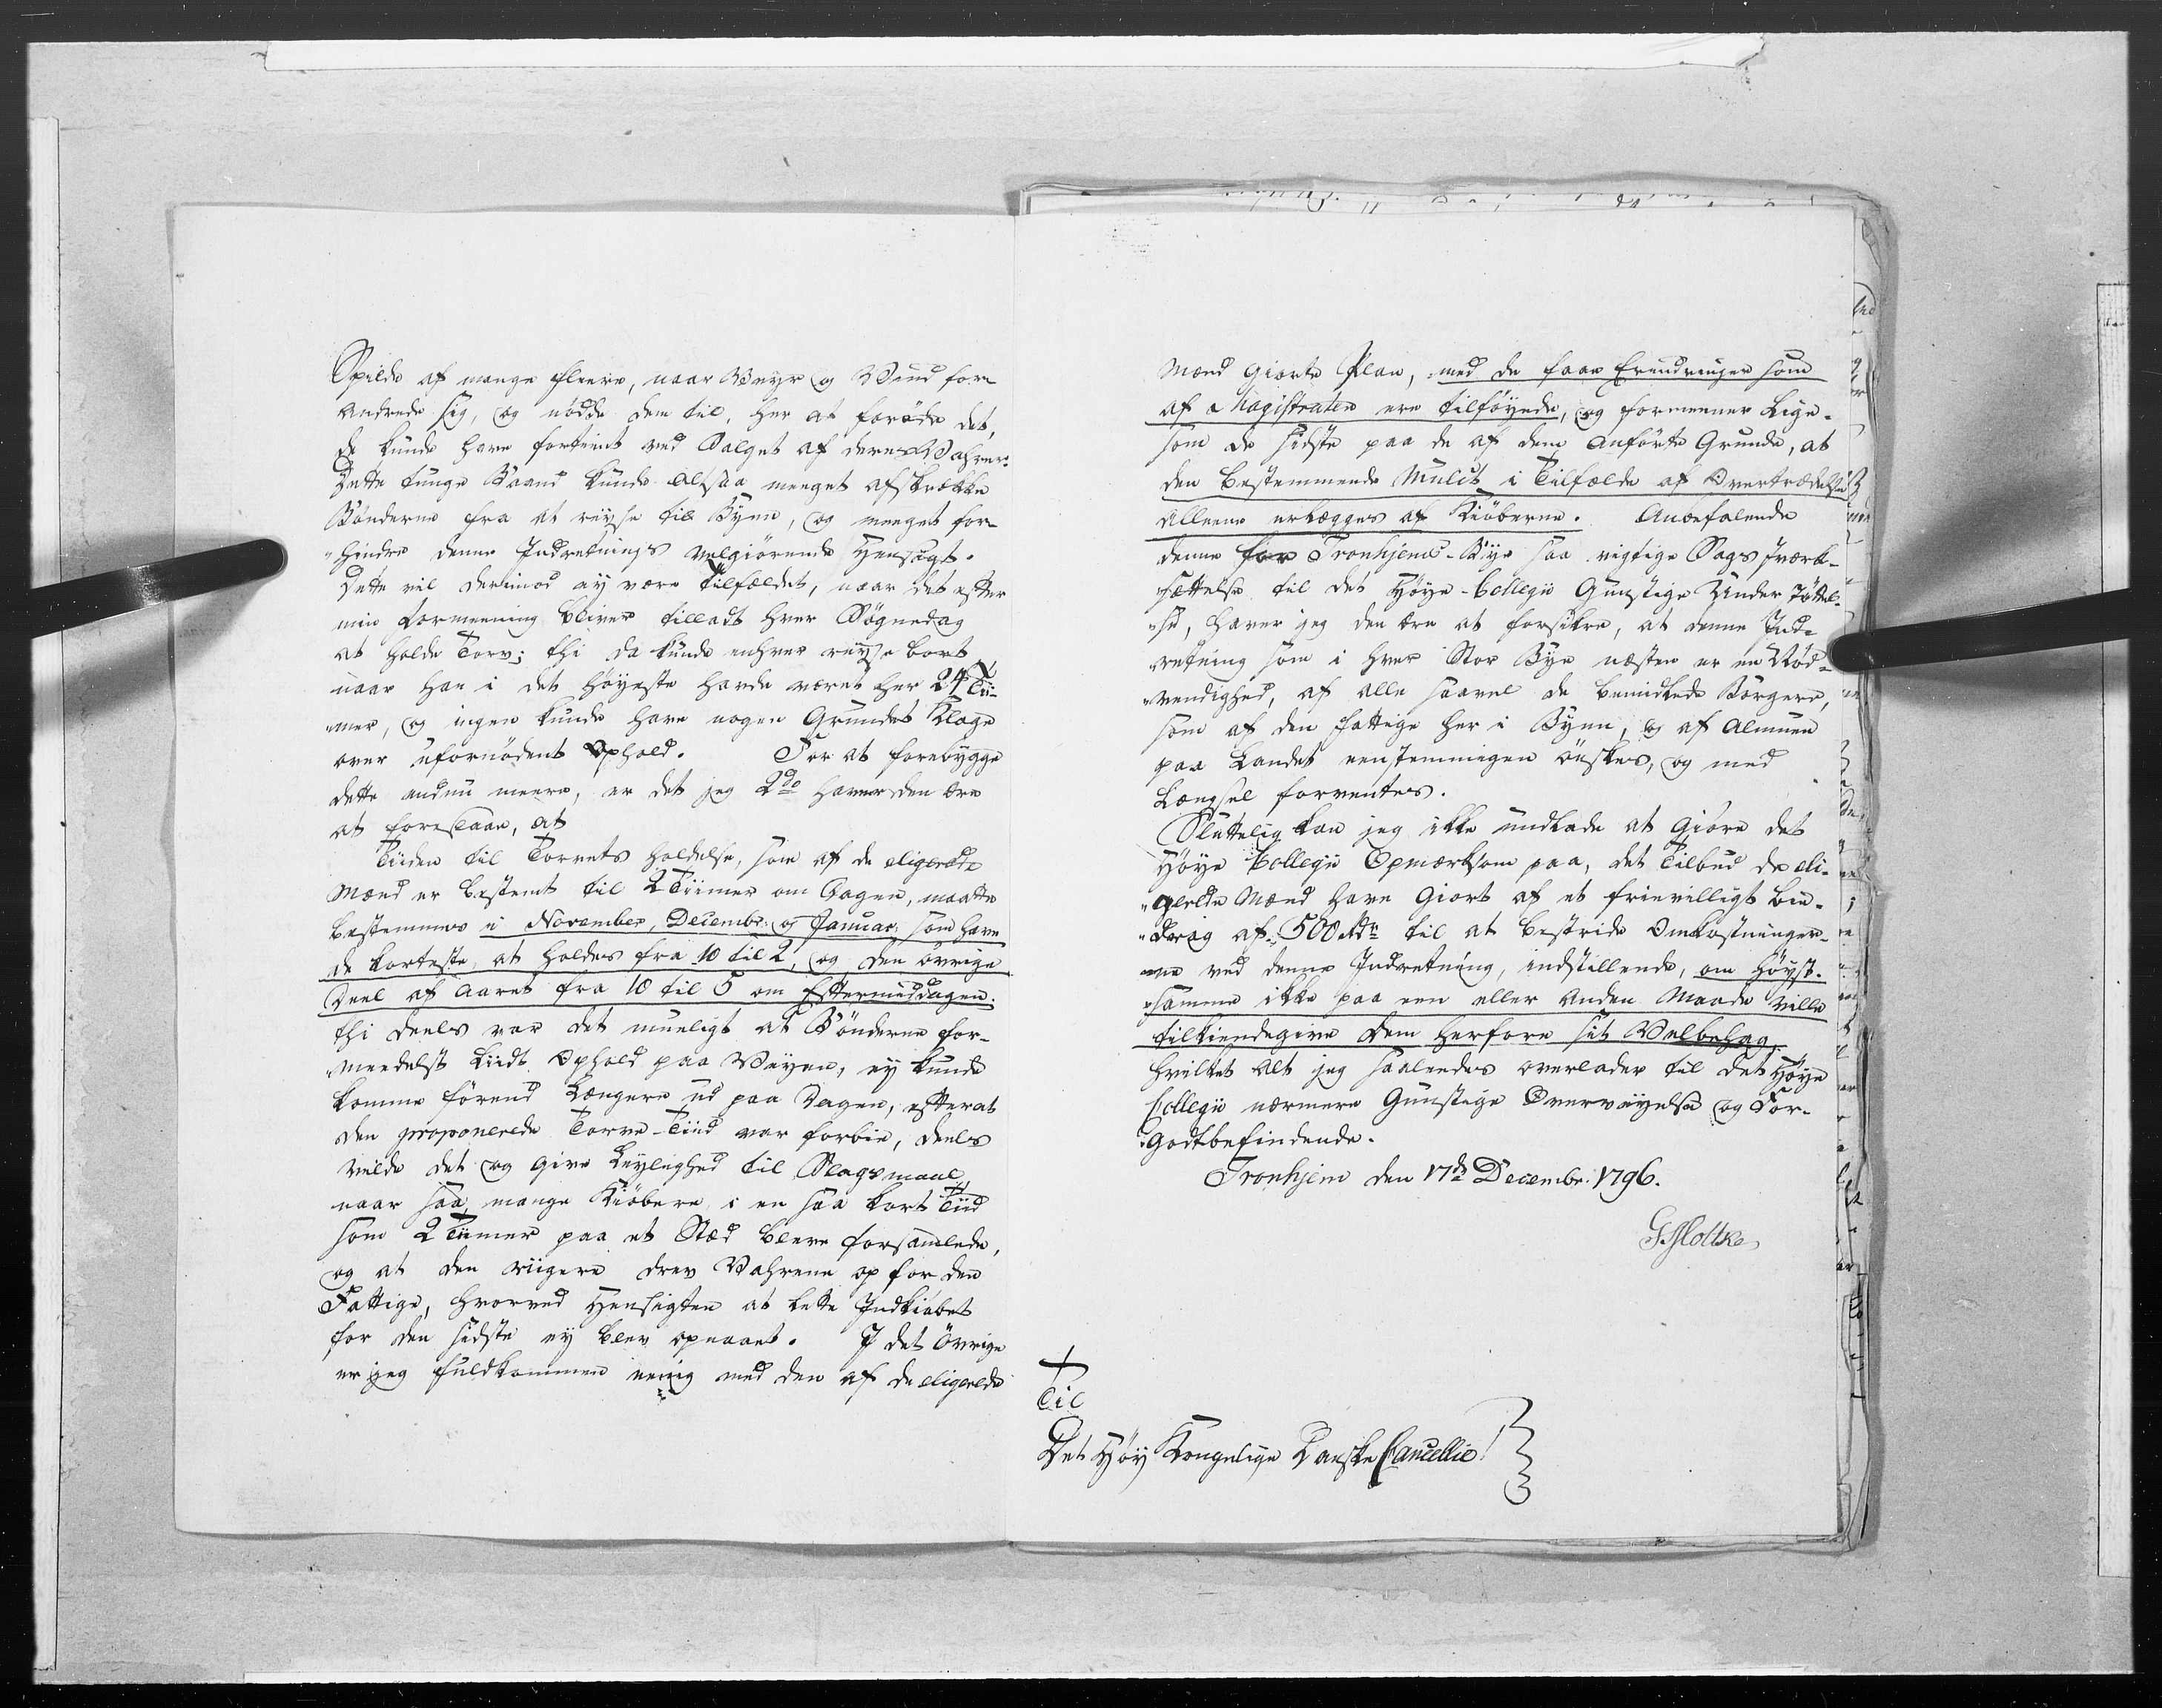 Spilde af mange fleere, naar Veyr og Vind for-
andrede sig, og nødde dem til, her at forøde det,
de kunde have fortient ved Salget af deres Vahrer.
Dette tunge Baand kunde altsaa meeget afskrække
Bønderne fra at reyse til Byen, og meeget for-
hindre denne Indretnings velgiørende Hensigt.
Dette vil derimod ey være Tilfældet, naar det efter
min Formeening bliver tilladt hver Søgnedag
at holde Torv; thi da kunde enhver reyse bort
naar han i det høyeste havde været her 24 Tii-
mer, og ingen kunde have nogen Grundet Klage
over ufornødent Ophold. For at forebygge
dette endnu meere, er det jeg 2do haver den ære
at foreslaae, at
Tiiden til Torvets holdelse, som af de eligerede
Mænd er bestemt til 2 Tiimer om Dagen, maatte
bestemmes i November, Decembr. og Januar. som have
de korteste, at holdes fra 10 til 2, og den øvrige
Deel af Aaret fra 10 til 5 om Eftermiddagen.
thi deels var det mueligt at Bønderne for-
meedelst liidt Ophold paa Veyen, ey kunde
komme førend længere ud paa Dagen, efterat
den proponerede Torve-Tiid var forbie, deels
vilde det og give Leylighed til Slagsmaal,
naar saa mange Kiøbere i en saa kort Tiid
som 2 Tiimer paa et Sted bleve forsamlede,
og at den riigere drev Vahrene op for den
Fattige, hvorved Hensigten at lette Indkiøbet
for den sidste ey blev opnaaet. I det øvrige
er jeg fuldkommen eenig med den af de eligerede
Mænd giorte Plan, med de faae Erindringer som
af Magistraten ere tilføyede, og formeener lige-
som de sidste paa de af dem anførte Grunde, at
den bestemmende Mulct i Tilfælde af Overtrædelse
alleene erlægges af Kiøberne. Anbefalende
denne for Tronhjems-Bye saa vigtige Sags Iværk-
sættelse til det Høye Collegii Gunstige Understøttel-
se, haver jeg den ære at forsikre, at denne Ind-
retning som i hver Stor Bye næsten er en Nød-
vendighed, af alle saavel de bemidlede Borgere,
som af den fattige her i Byen, og af Almuen
paa Landet eenstemmigen ønskes, og med
Længsel forventes.
Sluttelig kan jeg ikke undlade at giøre det
Høye Collegii Opmærksom paa, det Tilbud de eli-
gerede Mænd have giort af et frievilligt bie-
drag af 500 Rdr til at bestride Omkostninger-
ne ved denne Indretning, indstillende, om høyst-
samme ikke paa een eller anden Maade ville
tilkiendegive dem herfore sit Velbehag,
hvilket alt jeg saaleedes overlader til det Høye
Collegii nærmere Gunstige Overveyelse og For-
godtbefindende.
Tronhjem den 17de Decembr. 1796.
G Moltke
Til
Det Høy Kongelige Danske Cancellie!